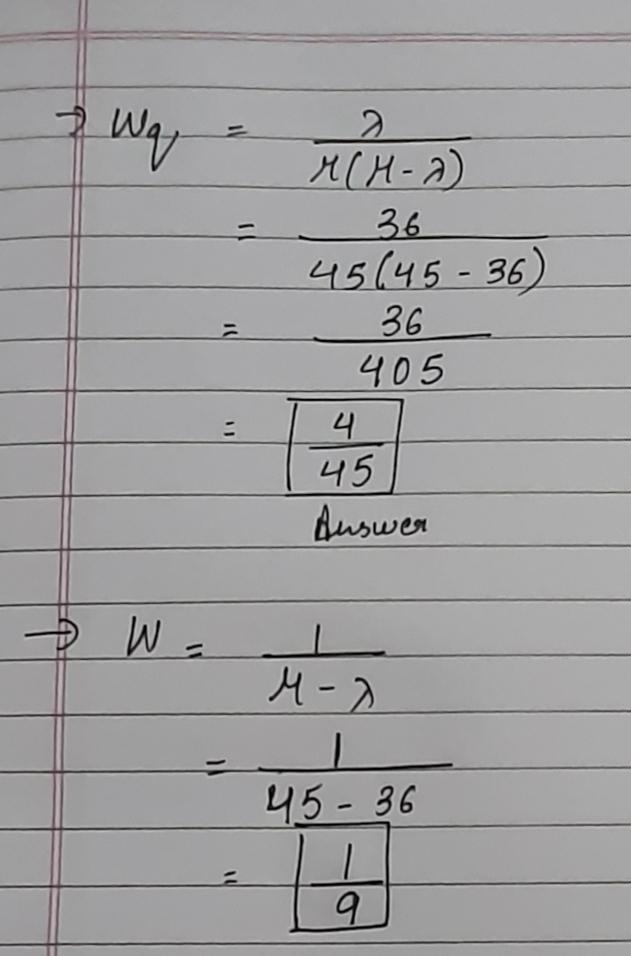 → Wq = λ
μ(μ-λ)
= 36
45(45-36)
= 36
405
= 4
45
Answer
→ W = 1
μ-λ
= 1
45-36
= 1
9